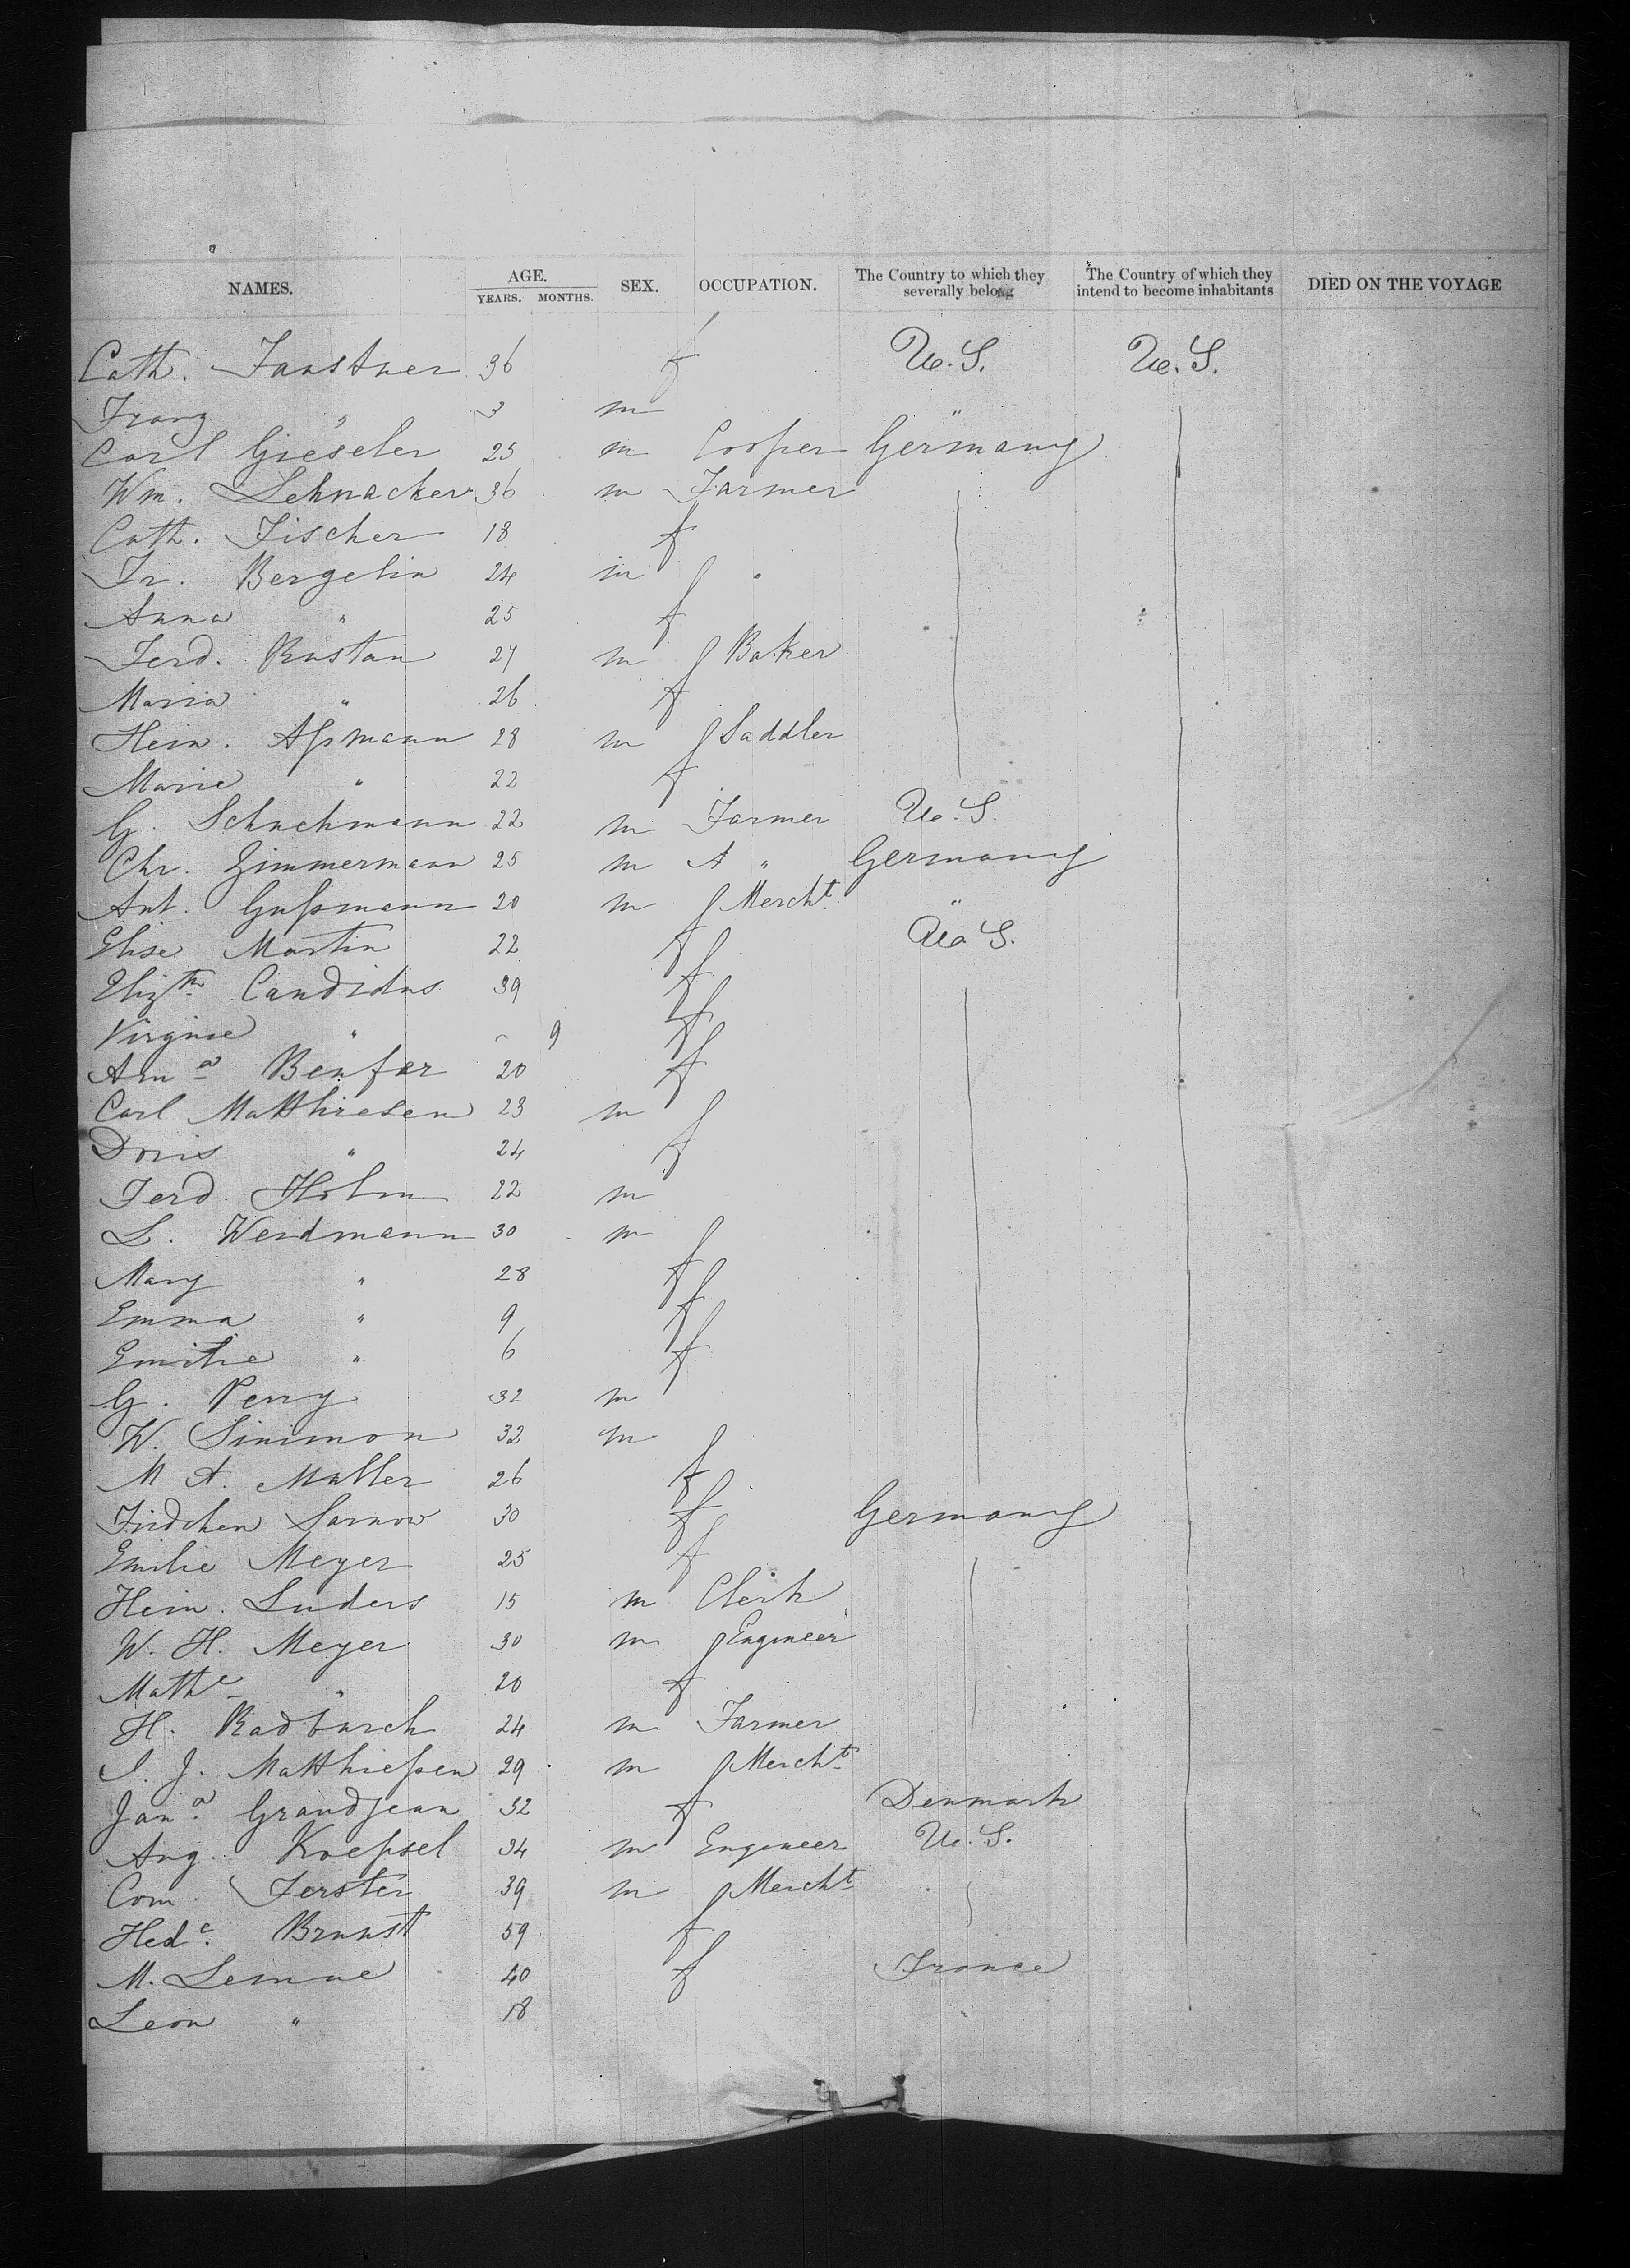 NAMES. AGE. YEARS. MONTHS. SEX. OCCUPATION. The Country to which they severally belong The Country of which they intend to become inhabitants DIED ON THE VOYAGE
Cath. Faustner 36 f U.S. U.S.
Franz " 3 m "
Carl Gieseler 25 m Cooper Germany
Wm. Schnacker 36 m Farmer
Cath. Fischer 18 f
Fr. Bergelin 24 m "
Anna " 25 f
Ferd. Rustan 27 m Baker
Maria " 26 f
Hein. Aßmann 28 m Saddler
Marie " 22 f
G. Schuchmann 22 m Farmer U.S.
Chr. Zimmermann 25 m " Germany
Ant. Gußmann 20 m Mercht. "
Elise Martin 22 f U.S.
Elizth. Candidus 39 f
Virginie " - 9 f
Ama Benfer 20 f
Carl Matthiesen 23 m
Doris " 24 f
Ferd. Holm 22 m
L. Weidmann 30 m
Mary " 28 f
Emma " 9 f
Emilie " 6 f
G. Perry 32 m
W. Sinimon 32 m
M A. Muller 26 f
Sarnow 30 f Germany
Emilie Meyer 25 f
Hein. Luders 15 m Clerk
W. H. Meyer 30 m Engineer
Mathe " 20 f
H. Radbusch 24 m Farmer
J. J. Matthießen 29 m Mercht.
Jana. Grandjean 32 f Denmark
Aug. Koepsel 34 m Engineer U.S.
Com. Ferster 39 m Mercht.
Hede. Brunst 59 f
M. 40 f France
Leon " 18 "